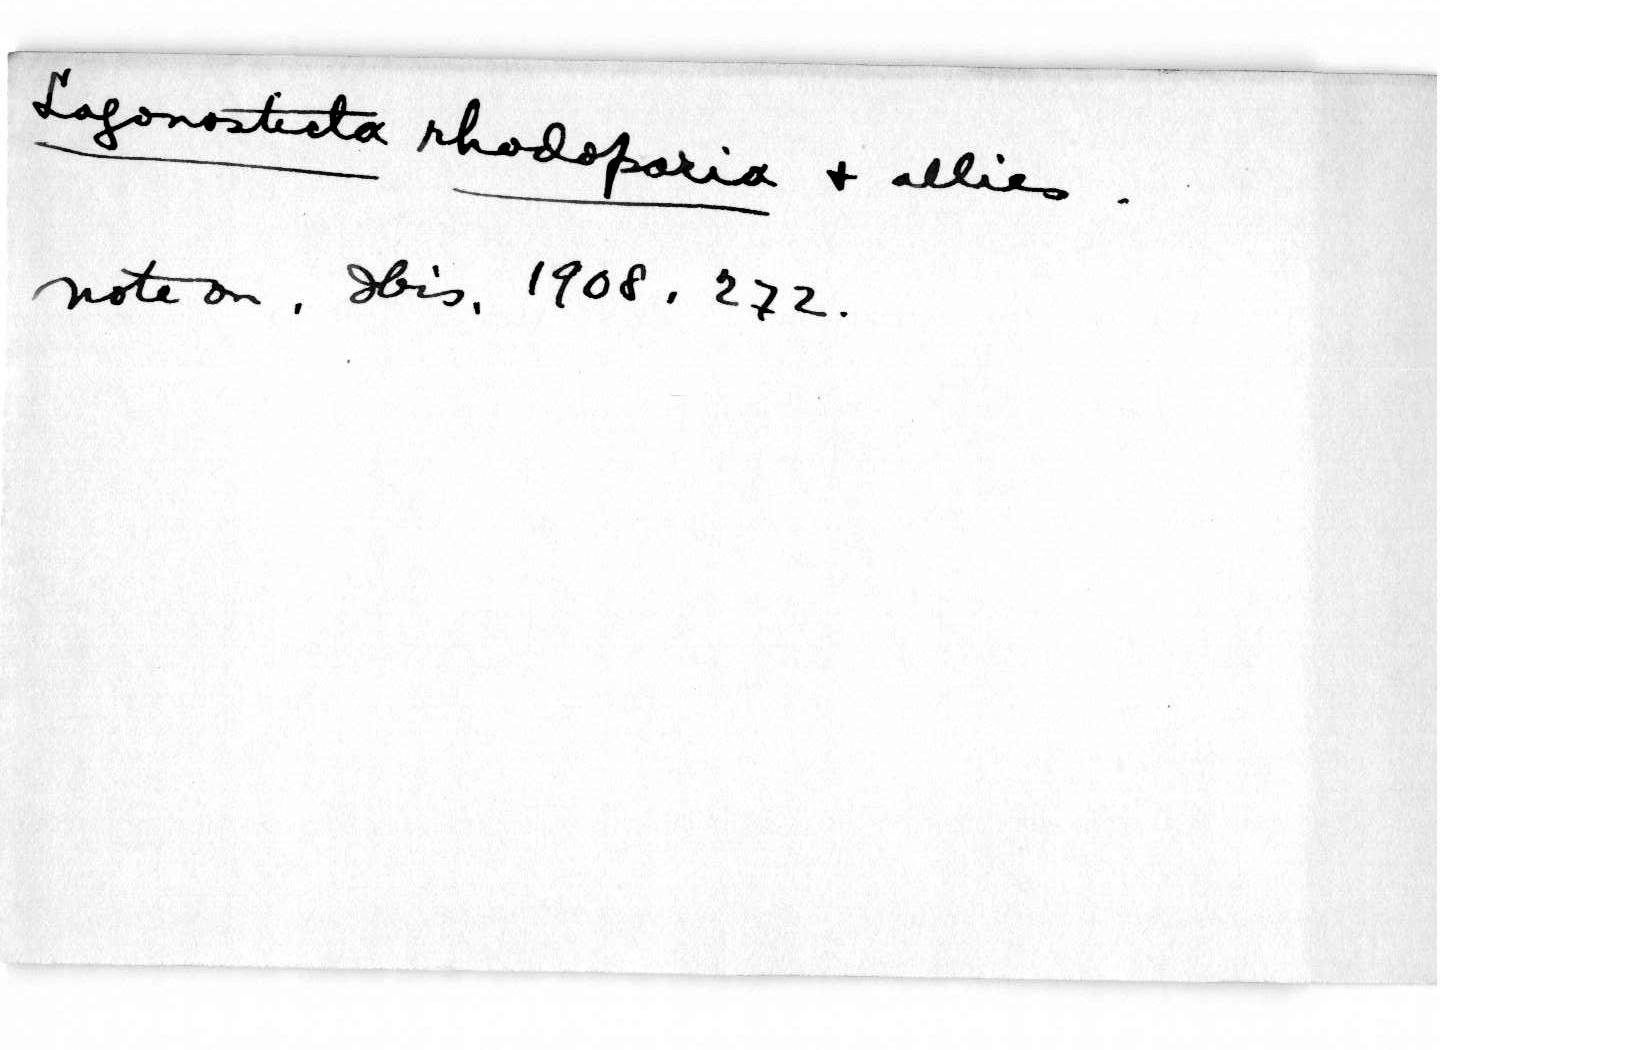 Lagonosticta rhodoparia + allies.
note on, Ibis, 1908, 272.